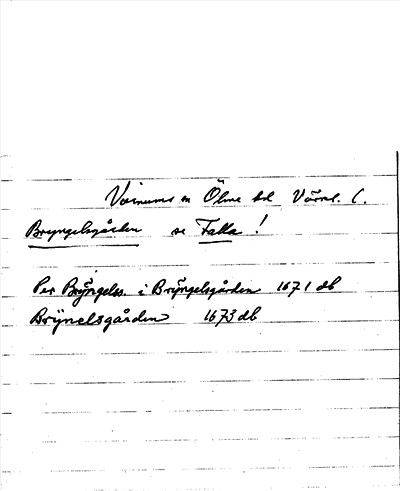 Varnums sn Ölme hd Värml. l.
Bryngelsgården se Falla!
Per Brÿngelss. i Brÿngelsgården 1671 db
Brÿnelsgården 1673 db